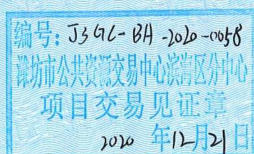 编号: JSGC-BH-2020-0058
潍坊市公共资源交易中心滨海区分中心
项目交易见证章
2020 年12月21日